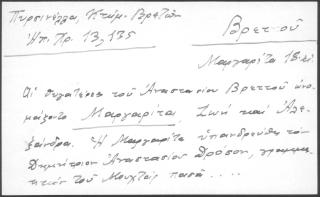 Πυρσινέλλα, Κτῆμ. Βρετῶν
Ἠπ. Χρ. 13, 135
Βρεττοῦ
Μαργαρίτα 18 αἰ.
Αἱ θυγατέρες τοῦ Ἀναστασίου Βρεττοῦ ὠνο-
μάζοντο Μαργαρίτα, Ζωή καί Ἀλε-
ξάνδρα. Ἡ Μαργαρίτα ὑπανδρεύθη τόν
Δημήτριον Ἀναστασίου Δρόσον, γραμμα-
τικόν τοῦ Μουχτάρ πασᾶ....